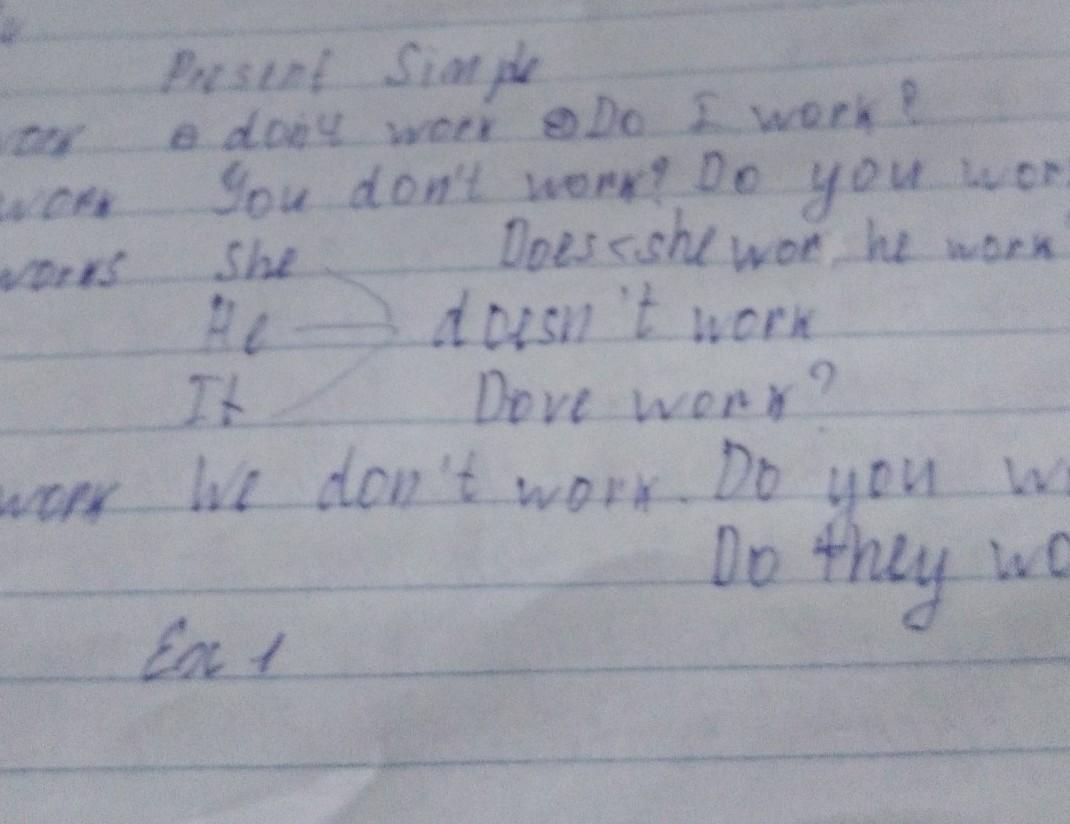 Present Simple
don't work Do I work?
work You don't work? Do you wor
works She Does < she wor he work
He doesn't work
It Dove work?
work We don't work. Do you w
Do they wo
Ex 1